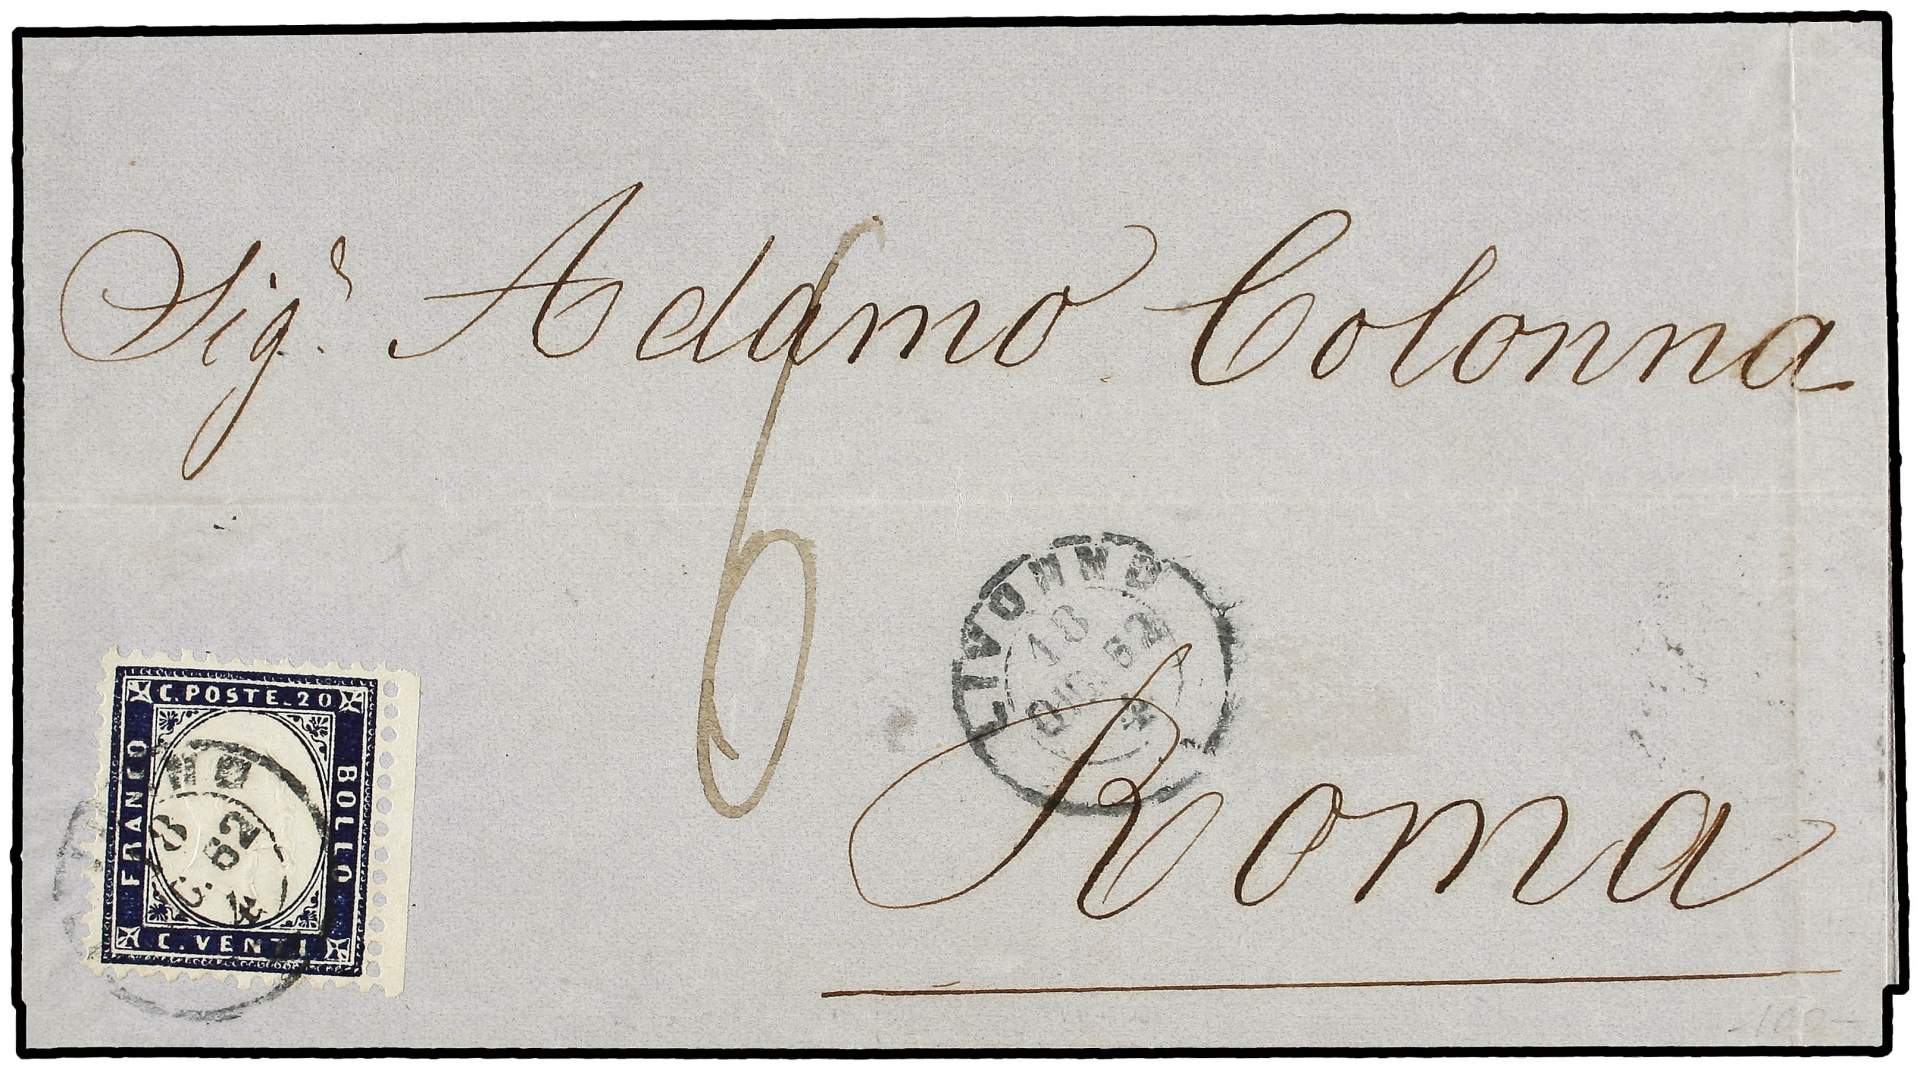 Sigr. Adamo Colonna
6
LIVORNO
18
DIC. 62
4
Roma
C. POSTE. 20
FRANCO
BOLLO
C. VENTI
NO
8
62
4
-100-